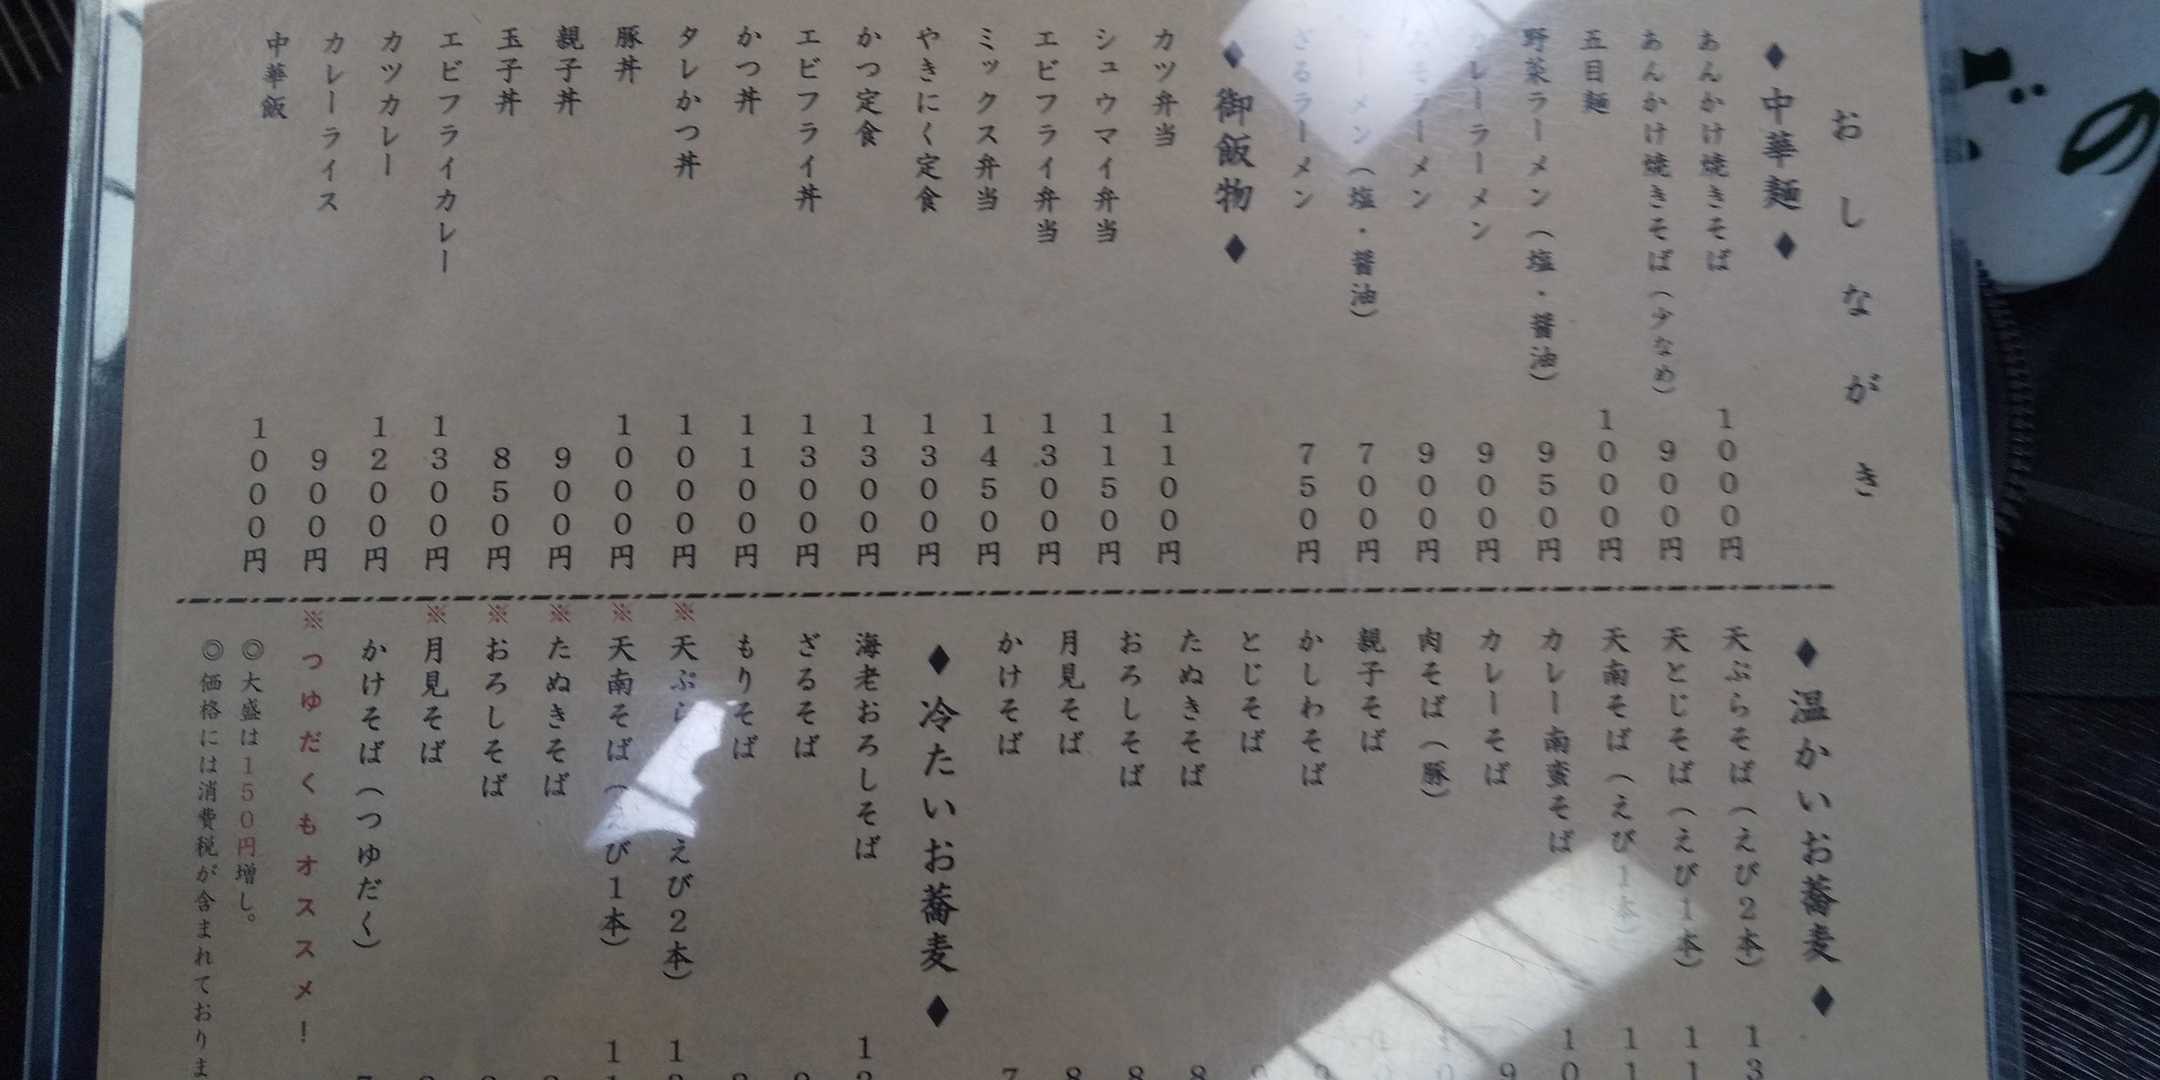 おしながき
◆中華麺◆
あんかけ焼きそば 1000円
あんかけ焼きそば（少なめ） 900円
五目麺 1000円
野菜ラーメン（塩・醤油） 950円
カレーラーメン 900円
みそラーメン 900円
ラーメン（塩・醤油） 700円
ざるラーメン 750円
◆御飯物◆
カツ弁当 1100円
シュウマイ弁当 1150円
エビフライ弁当 1300円
ミックス弁当 1450円
やきにく定食 1300円
かつ定食 1300円
エビフライ丼 1300円
かつ丼 1100円
タレかつ丼 1000円
豚丼 1000円
親子丼 900円
玉子丼 850円
エビフライカレー 1300円
カツカレー 1200円
カレーライス 900円
中華飯 1000円
◆温かいお蕎麦◆
天ぷらそば（えび2本） 13
天とじそば（えび1本） 11
天南そば（えび1本） 11
カレー南蛮そば 10
カレーそば 9
肉そば（豚）
親子そば
かしわそば
とじそば
たぬきそば 8
おろしそば 8
月見そば 8
かけそば 7
◆冷たいお蕎麦◆
海老おろしそば 12
ざるそば
もりそば
※天ぷら えび2本） 1
※天南そば（えび1本） 11
※たぬきそば
※おろしそば
※月見そば
かけそば（つゆだく） 7
※つゆだくもオススメ！
◎大盛は150円増し。
◎価格には消費税が含まれておりま